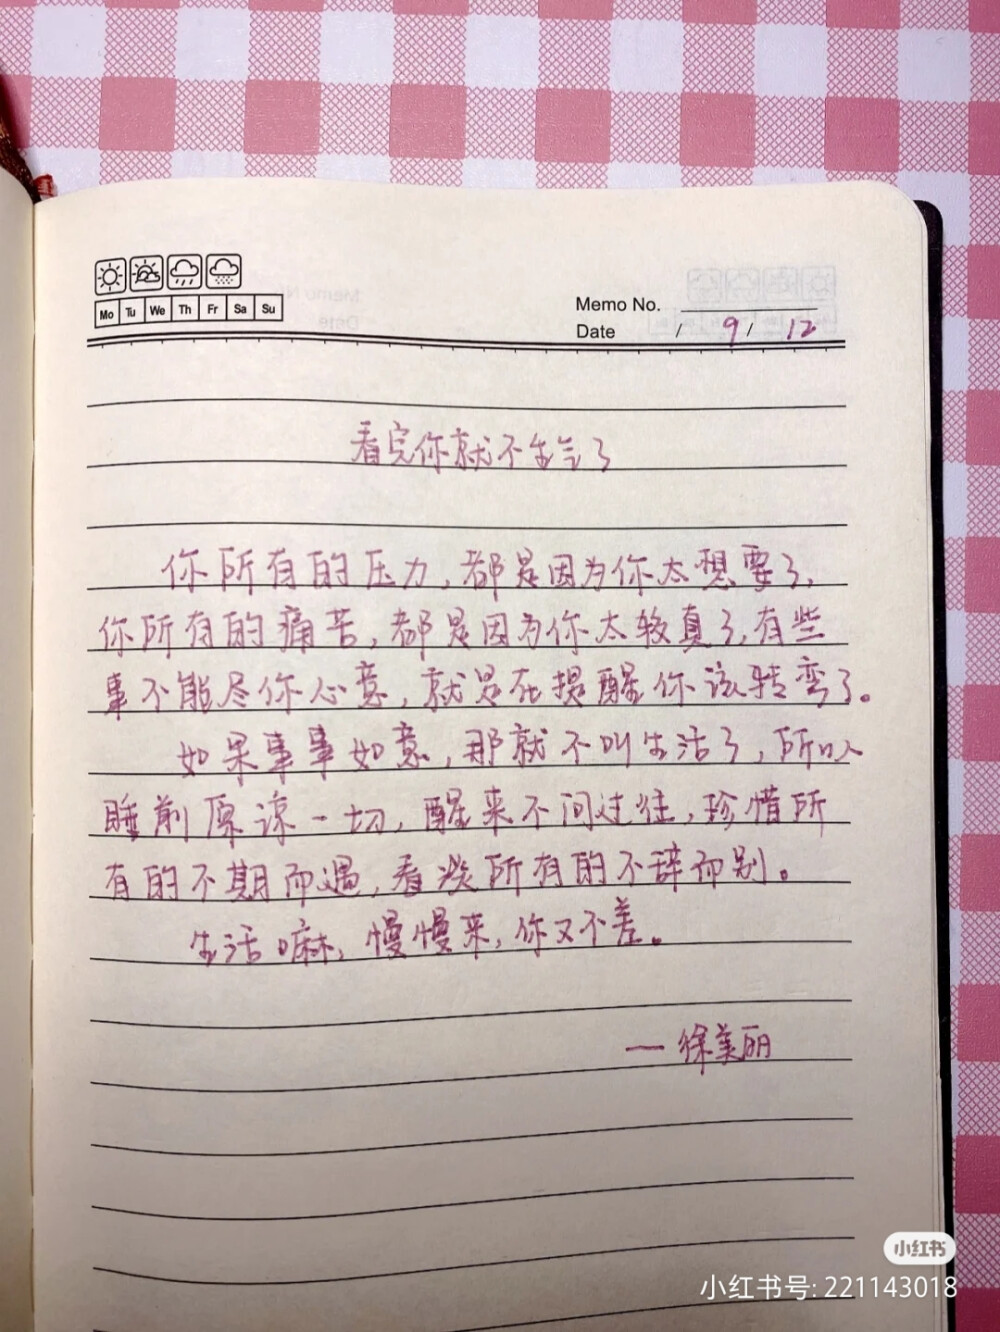 Mo Tu We Th Fr Sa Su
Memo No.
Date / 9 / 12
看完你就不生气了
你所有的压力，都是因为你太想要了，
你所有的痛苦，都是因为你太较真了，有些
事不能尽你心意，就是在提醒你该转弯了。
如果事事如意，那就不叫生活了，所以
睡前原谅一切，醒来不问过往，珍惜所
有的不期而遇，看淡所有的不辞而别。
生活嘛，慢慢来，你又不差。
— 徐美丽
小红书
小红书号: 221143018